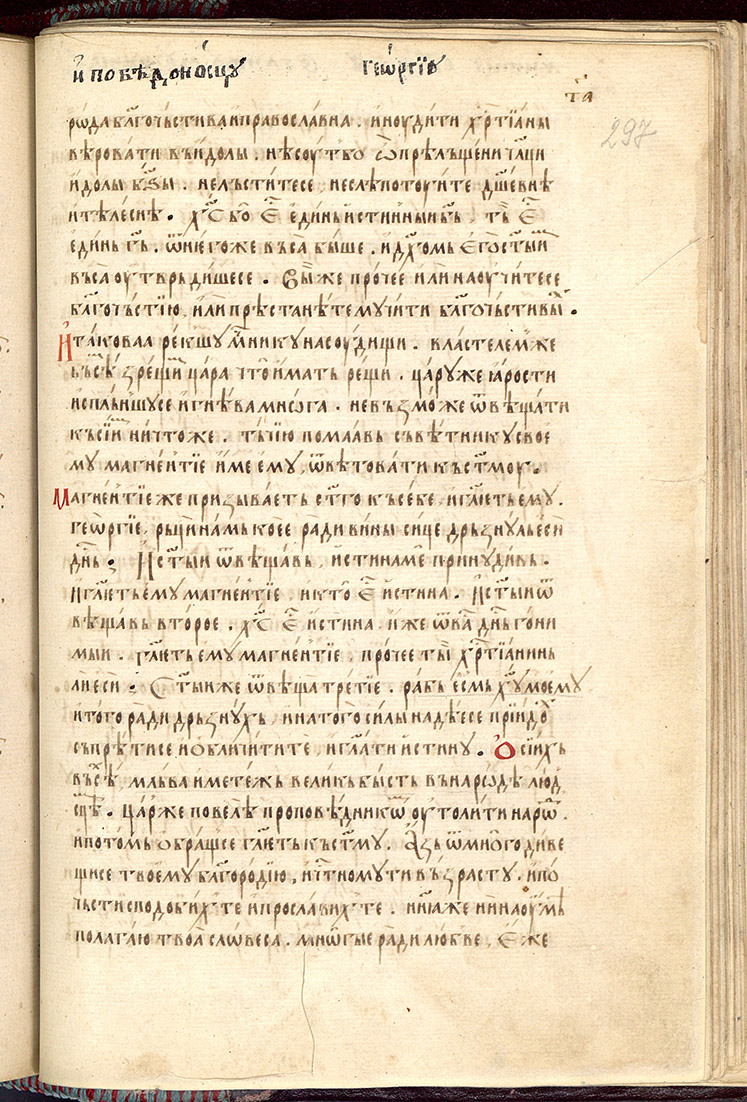 и҆ побѣдоно́сцꙋ гео́ргїю
т҃а
297
ро́да бл҃гочьстива и православна . и ноудити хрⷭ҇тїаны
вѣровати въ идолы . нѣсоу бо б҃ѡ прѣльщени чл҃ци
идолы бѕ҃ы . не льститесе , не слѣпотоуите дш҃евнѣ
и тѣлеснѣ . хс҃ бо є҆ⷭ҇ единь истинныи б҃ь , тъ є҆ⷭ҇
единь г҃ь . ѿ него же въса быше . и дх҃омь его ст҃ыимⸯ
въса оутврьдишесе . Вы же прочее или наоучитесе
бл҃гочьстїю , или прѣстанѣте мꙋчити бл҃гочьстивыⷯ .
И таковаа рекшꙋ мⷱ҇никꙋ на соудищи . властелем же
въсѣⷨ зрещиⷨ цара что имать рещи . царꙋ же ꙗрости
испльньшꙋсе и гнѣва мнѡга . не възможе ѿвѣщати
къ сїиⷨ ничтоже . тъчїю помаавь съвѣтникꙋ свое
мꙋ магнентїе име емꙋ , ѿвѣтовати къ ст҃омоу .
Магнентїе же призываеть ст҃го къ себе , и гл҃еть емꙋ .
геѡргїе , рьци намь коее ради вины сице дрьзнꙋль еси
дн҃ь ; И ст҃ыи ѿвѣщавь , истина ме принꙋдивь .
И гл҃еть емꙋ магнентїе , и кто є҆ⷭ҇ истина . И ст҃ыи ѿ
вѣщавь второе . хс҃ є҆ⷭ҇ истина , иже ѿ ва дн҃ь гони
мыи . гл҃еть емꙋ магнентїе , прочее ты хрⷭ҇тїанинь
ли еси ; Ст҃ыи же ѿвѣща третїе . рабь есмь хⷭ҇ꙋ моемꙋ
и того ради дрьзнꙋхь , и на того силы надѣесе прїидоⷯ
съпрѣтисе и обличити те , и гл҃ати истинꙋ . О сїихь
въсѣⷯ , мльва и метежь великь бысть въ нарѡдѣ люд
сцѣⷨ . Цар же повелѣ проповѣдникѡⷨ оутолити нарѡⷣ .
и потомь обращсе гл҃еть къ ст҃мꙋ . Азь ѡ многодиве
щисе твоемꙋ бл҃городїю , и чⷭ҇тномꙋ ти възрастꙋ , и по
чьсти сподобихⸯ те и прославихⸯ те . нн҃ꙗ же ни на оумѣ
полагаю твоа словеса . мнѡгые ради любве , Еже